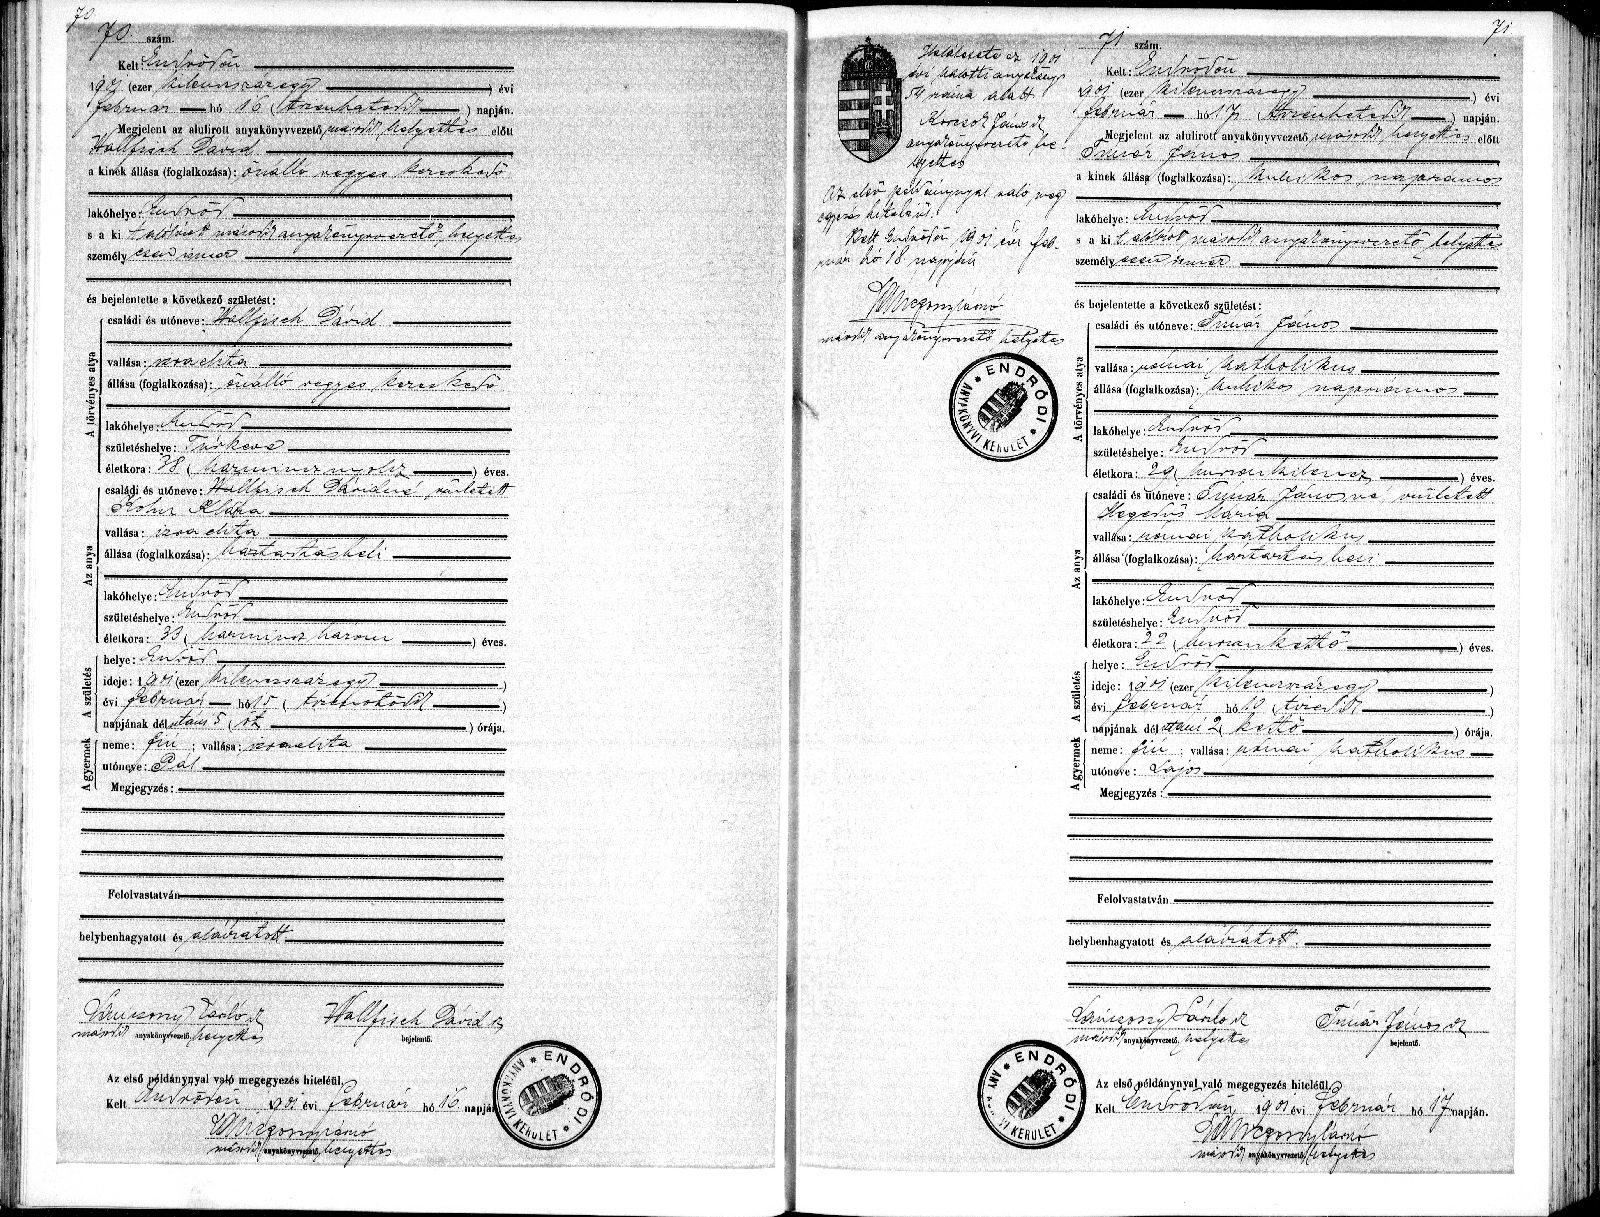 70
70 szám.
Kelt Endrődön
1901 (ezer kilenczszázegy) évi
február hó 16 (tizenhatodik) napján.
Megjelent az alulirott anyakönyvvezető másodk helyettes előtt
Wallfisch Dávid
a kinek állása (foglalkozása): önálló vegyes kereskedő
lakóhelye: Endrőd
s a ki t alólirott másodk anyakönyvvezető helyettes
személyesen ismer
és bejelentette a következő születést:
A törvényes atya
családi és utóneve: Wallfisch Dávid
vallása: izraelita
állása (foglalkozása): önálló vegyes kereskedő
lakóhelye: Endrőd
születéshelye: Túrkeve
életkora: 38 (harmincz nyolcz) éves.
Az anya
családi és utóneve: Wallfisch Dávidné született
Kohn Klára
vallása: izraelita
állása (foglalkozása): háztartásbeli
lakóhelye: Endrőd
születéshelye: Endrőd
életkora: 33 (harmincz három) éves.
A születés
helye: Endrőd
ideje: 1901 (ezer kilenczszázegy)
évi február hó 15 (tizenötödik)
napjának délutáni 5 (öt) órája.
A gyermek
neme: fiú; vallása: izraelita
utóneve: Pál
Megjegyzés:
Felolvastatván
helybenhagyatott és aláiratott
László sk Wallfisch Dávid sk
másodk anyakönyvvezető, helyettes bejelentő.
Az első példánynyal való megegyezés hiteléül.
Kelt Endrődön 1901 évi február hó 16. napján
másodk anyakönyvvezető, helyettes
ENDRŐDI * ANYAKÖNYVI KERÜLET *
Halálesete az 1901
évi halotti anyakönyv
száma alatt
János sk
anyakönyvvezető he-
lyettes
Az első példánynyal való meg
egyezés hiteléül.
Kelt Endrődön 1901 évi feb-
ruár hó 18 napján
másodk anyakönyvvezető helyettes
ENDRŐDI * ANYAKÖNYVI KERÜLET *
71
71 szám.
Kelt: Endrődön
1901 (ezer kilenczszázegy) évi
február hó 17 (tizenhetedik) napján.
Megjelent az alulirott anyakönyvvezető másodk helyettes előtt
Timár János
a kinek állása (foglalkozása): kubikos napszámos
lakóhelye: Endrőd
s a ki t alólirott másodk anyakönyvvezető helyettes
személyesen ismer
és bejelentette a következő születést:
A törvényes atya
családi és utóneve: Timár János
vallása: római katholikus
állása (foglalkozása): kubikos napszámos
lakóhelye: Endrőd
születéshelye: Endrőd
életkora: 29 (huszonkilencz) éves.
Az anya
családi és utóneve: Timár Jánosné született
Hegedüs Mária
vallása: római katholikus
állása (foglalkozása): háztartás beli
lakóhelye: Endrőd
születéshelye: Endrőd
életkora: 22 (huszonkettő) éves.
A születés
helye: Endrőd
ideje: 1901 (ezer kilenczszázegy)
évi február hó 10 (tizedik)
napjának délutáni 2 (kettő) órája.
A gyermek
neme: fiú; vallása: római katholikus
utóneve: Lajos
Megjegyzés:
Felolvastatván
helybenhagyatott és aláiratott.
László sk Timár János sk
másodk anyakönyvvezető, helyettes bejelentő.
Az első példánynyal való megegyezés hiteléül
Kelt Endrődön, 1901 évi február hó 17 napján.
másodk anyakönyvvezető, helyettes
ENDRŐDI * ANYAKÖNYVI KERÜLET